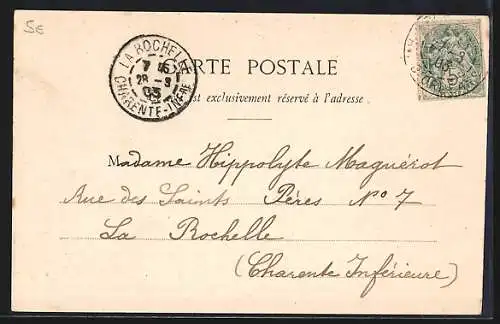 5€
LA ROCHELLE
7
28 - 9
03
CHARENTE-INFRE
CARTE POSTALE
est exclusivement réservé à l'adresse
Madame Hippolyte Maguérot
Rue des Saints Pères No 7
La Rochelle
(Charente Inférieure)